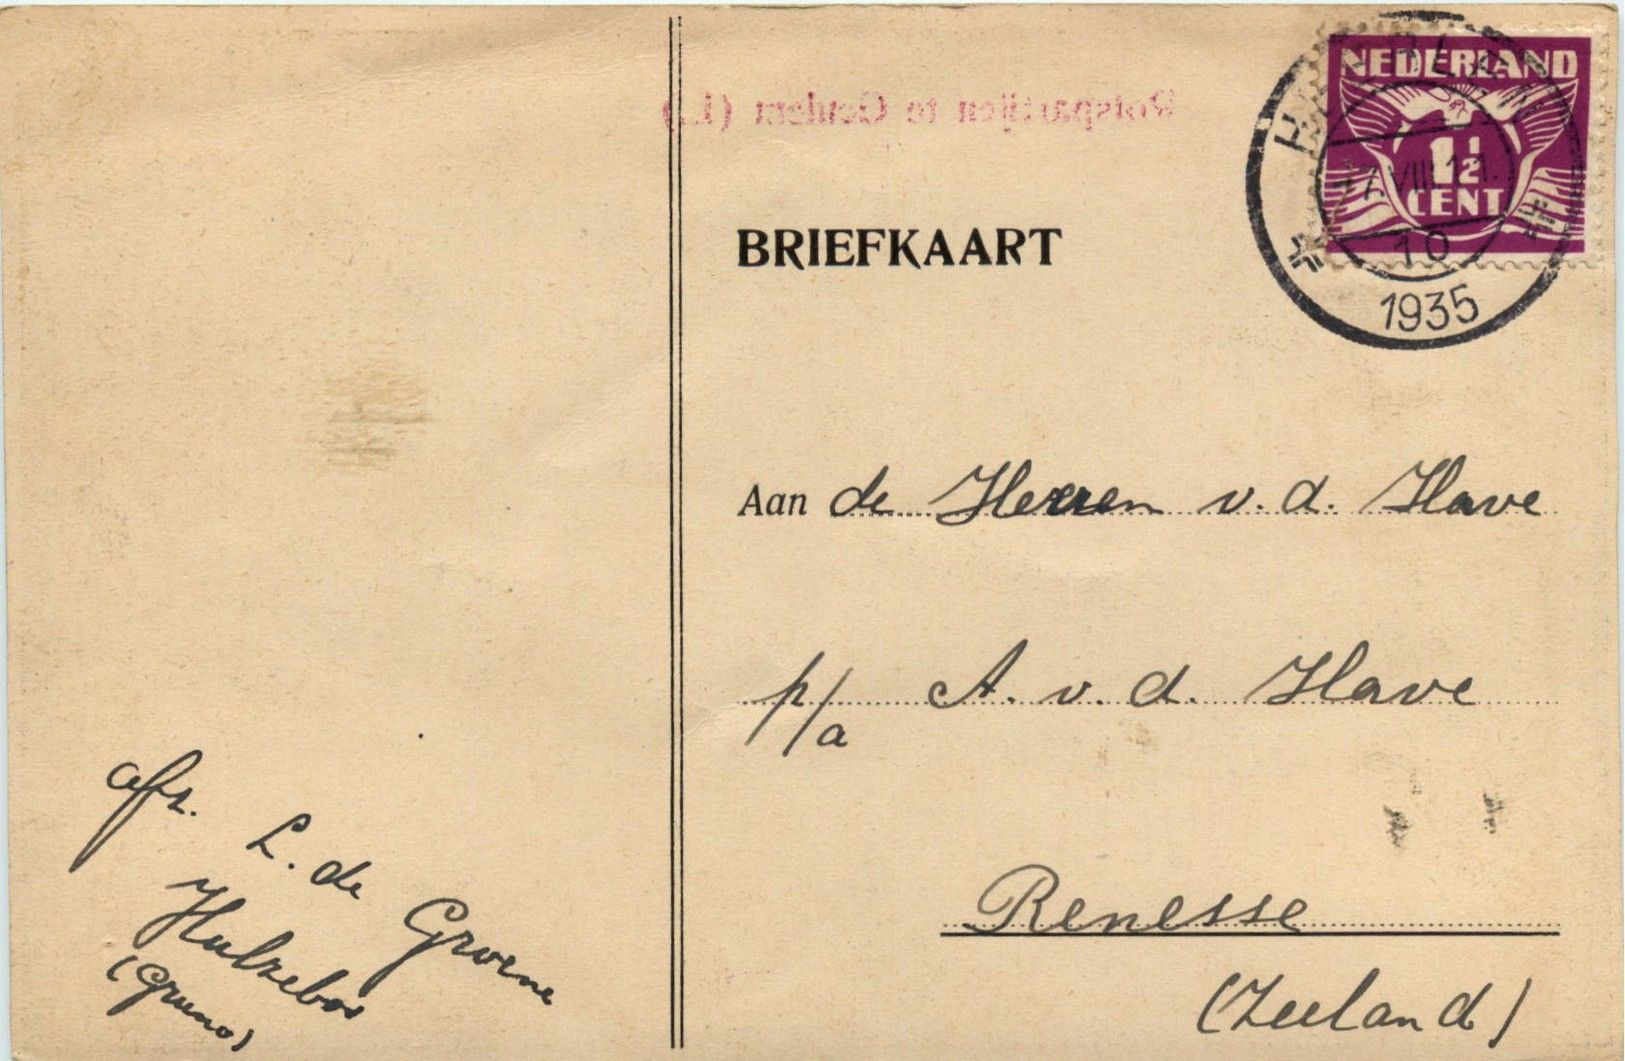 Rotspartijen te Geulem (L.)
NEDERLAND
1½
CENT
7.VIII.11.
10
1935
BRIEFKAART
Aan de Heeren v. d. Have
p/a A. v. d. Have
Renesse
(Zeeland)
afz. L. de Groene